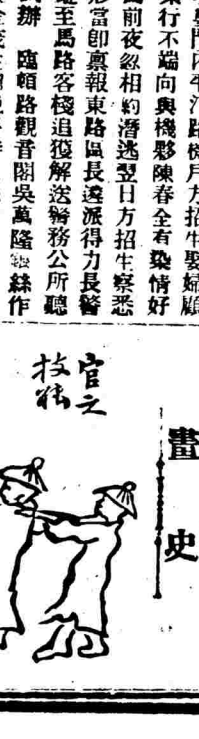 門內平江路機戶方招生娶婦顧
行不端向與機夥陳春全有染情好
前夜忽相約潛逃翌日方招生察悉
當即稟報東路區長遂派得力長警
至馬路客棧追獲解送警務公所聽
辦 臨頓路觀音閣吳萬隆絲作
畫史
官之
技能